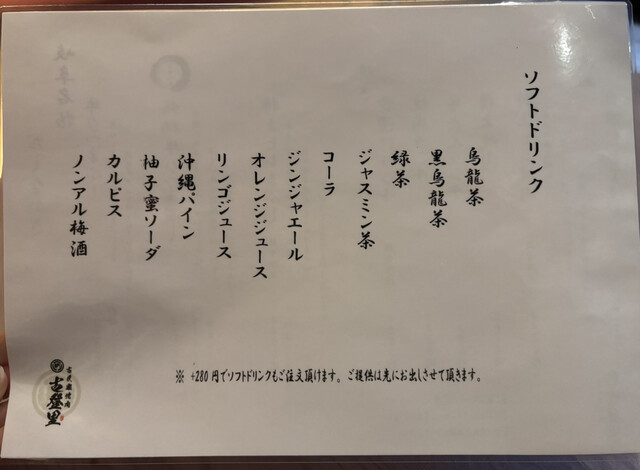 ソフトドリンク
烏龍茶
黒烏龍茶
緑茶
ジャスミン茶
コーラ
ジンジャエール
オレンジジュース
リンゴジュース
沖縄パイン
柚子蜜ソーダ
カルピス
ノンアル梅酒
※ +280 円でソフトドリンクもご注文頂けます。ご提供は先にお出しさせて頂きます。